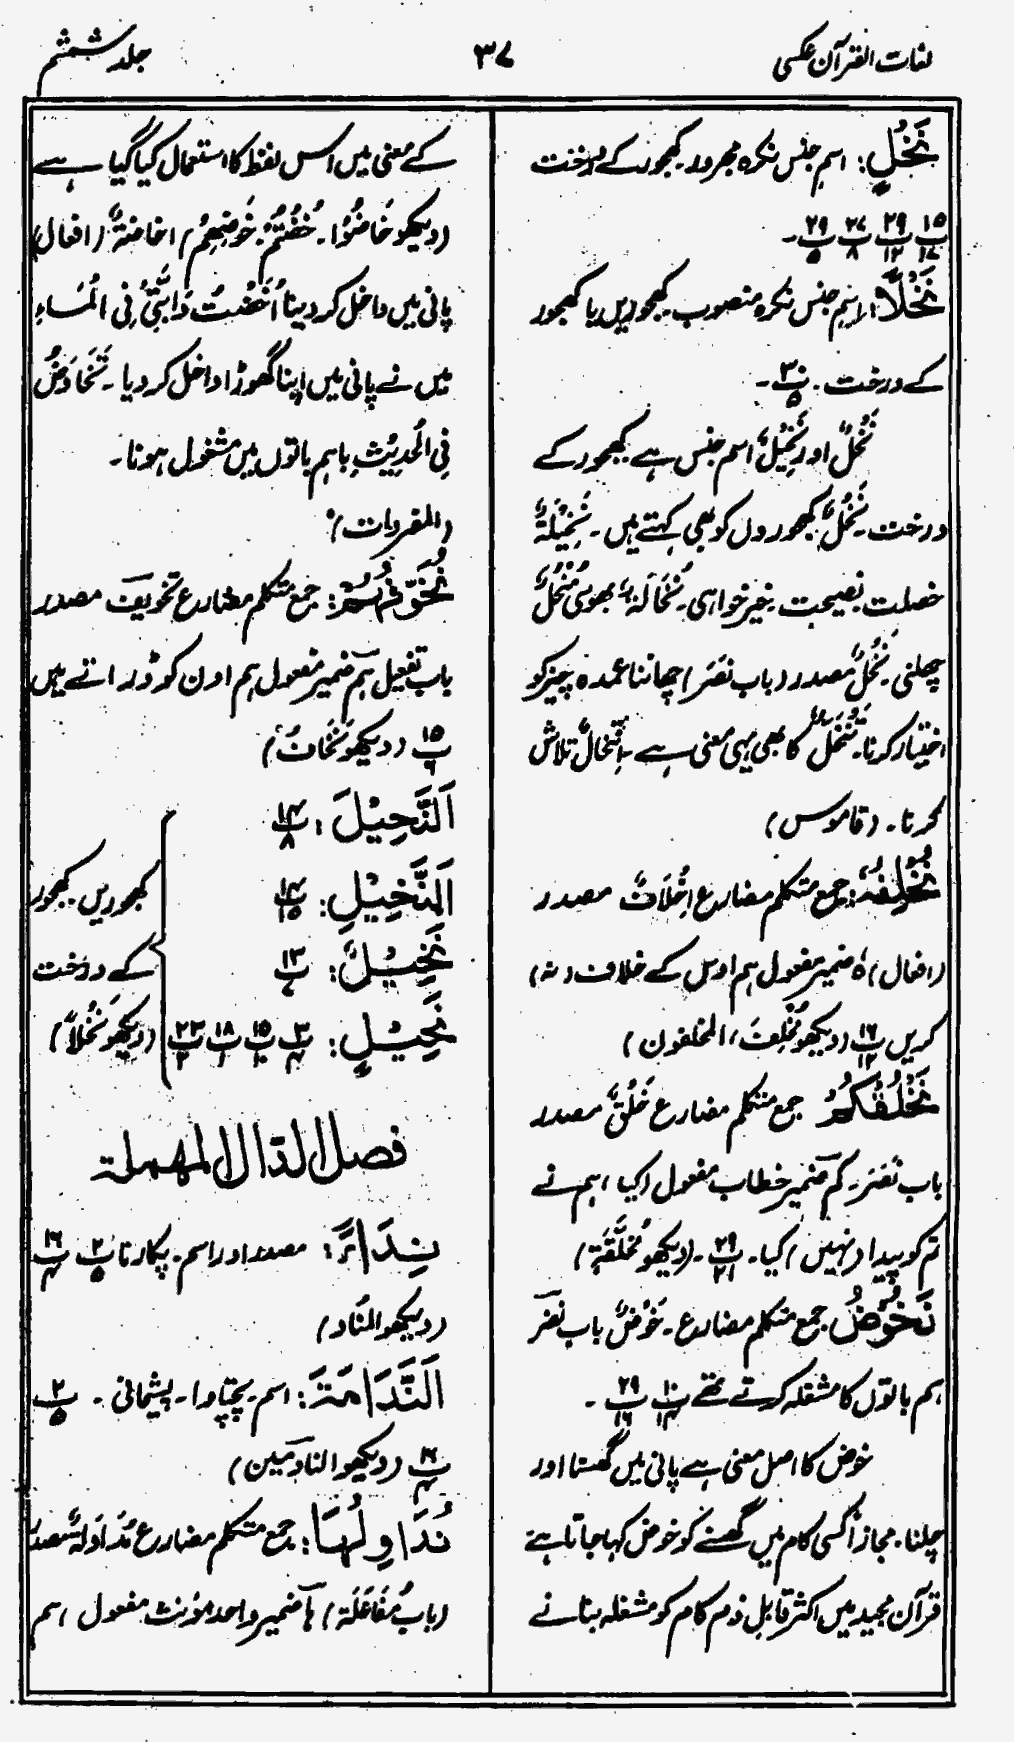 لغات القرآن عکسی
۳۷
جلد ششم
نَخْلٍ: اسم جنس نکرہ مجرور۔ کھجور کے درخت
پ ۱۵/۱۷ پ ۲۹/۱۲ پ ۲۷/۸ پ ۲۹/۵۔
نَخْلًا: اسم جنس نکرہ منصوب۔ کھجوریں یا کھجور
کے درخت۔ پ ۳۰/۵۔
نَخْلٌ اور نَخِیْلٌ اسم جنس ہے کھجور کے
درخت۔ نَخْلٌ کھجوروں کو بھی کہتے ہیں۔ نَخِیْلَۃٌ
خصلت نصیحت۔ خیر خواہی۔ نُخَالَۃٌ بھوسی مُنْخُلٌ
چھلنی۔ نَخْلٌ مصدر (باب نَصَرَ) چھاننا عمدہ چیز کو
اختیار کرنا۔ تَنَخُّلٌ کا بھی یہی معنی ہے۔ اِنْتِخَالٌ تلاش
کرنا۔ (قاموس)
نُخْلِفُہٗ: جمع متکلم مضارع اِخْلَافٌ مصدر
(افعال) ہٗ ضمیر مفعول ہم اوس کے خلاف (نہ)
کریں پ ۱۶/۱۲ (دیکھو مُخْلِفَ، المخلفون)
نَخْلُقْکُّمْ جمع متکلم مضارع خَلْقٌ مصدر
باب نَصَرَ۔ کم ضمیر خطاب مفعول (کیا) ہم نے
تم کو پیدا (نہیں) کیا۔ پ ۲۹/۲۱۔ (دیکھو مُخَلَّقَۃٍ)
نَخُوْضُ جمع متکلم مضارع۔ خَوْضٌ باب نَصَرَ
ہم باتوں کا مشغلہ کرتے تھے پ ۱۰/۱۴ پ ۲۹/۱۶۔
خوض کا اصل معنی ہے پانی میں گھسنا اور
چلنا۔ مجازاً کسی کام میں گھسنے کو خوض کہا جاتا ہے
قرآن مجید میں اکثر قابل ذم کام کو مشغلہ بنانے
کے معنی میں اس لفظ کا استعمال کیا گیا ہے
(دیکھو خَاضُوْا۔ خُضْتُمْ۔ خَوْضِھِمْ) اخاضۃٌ (افعال)
پانی میں داخل کر دینا اَخَضْتُ دَابَّتِیْ فِی الْمَاءِ
میں نے پانی میں اپنا گھوڑا داخل کر دیا۔ تَخَاوَضُ
فِی الْحَدِیْثِ باہم باتوں میں مشغول ہونا۔
(المفردات)
نُخَوِّفُہُمْ: جمع متکلم مضارع تخویف مصدر
باب تفعیل ہم ضمیر مفعول ہم اون کو ڈراتے ہیں
پ ۱۵/۶ (دیکھو نَخَافُ)
اَلنَّخِیْلَ: پ ۱۴/۸
اَلنَّخِیْلِ: پ ۱۴/۱۵
نَخِیْلٌ: پ ۱۳/۷
نَخِیْلٍ: پ ۳/۴ پ ۱۵/۱۰ پ ۱۸/۱ پ ۲۳/۲ (دیکھو نَخْلًا)
کھجوریں۔ کھجور
کے درخت
فصل الدال المہملۃ
نِدَاءً: مصدر اور اسم۔ پکارنا پ ۲/۵ پ ۱۶/۴
(دیکھو المُنَاد)
اَلنَّدَامَۃَ: اسم۔ پچتاوا۔ پشیمانی۔ پ ۲/۵
پ ۱۶/۴ (دیکھو النادمین)
نُدَاوِلُہَا: جمع متکلم مضارع مُدَاوَلَۃٌ مصدر
(باب مُفَاعَلَۃ) ہا ضمیر واحد مؤنث مفعول، ہم